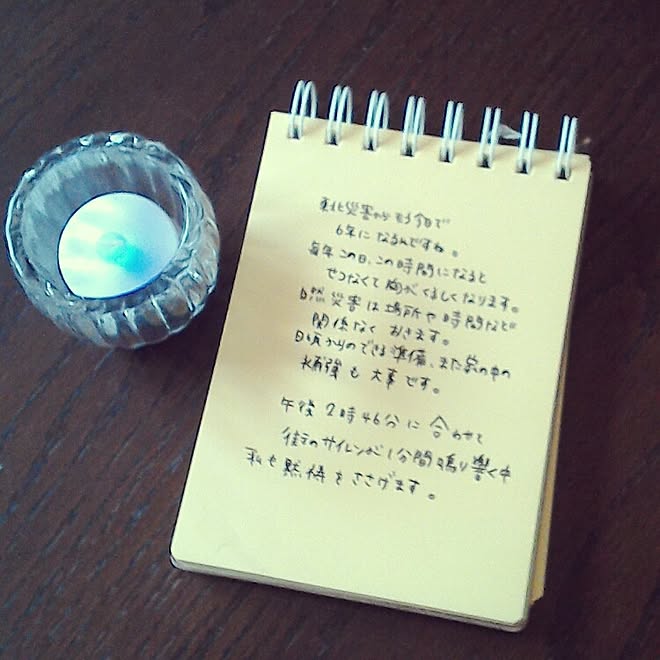 東北災害からもう今日で
6年になるんですね。
毎年この日、この時間になると
せつなくて胸がくるしくなります。
自然災害は場所や時間など
関係なくおきます。
日頃からのできる準備、また家の中の
補強も大事です。
午後2時46分に合わせて
街のサイレンが1分間鳴り響く中
私も黙祷をささげます。